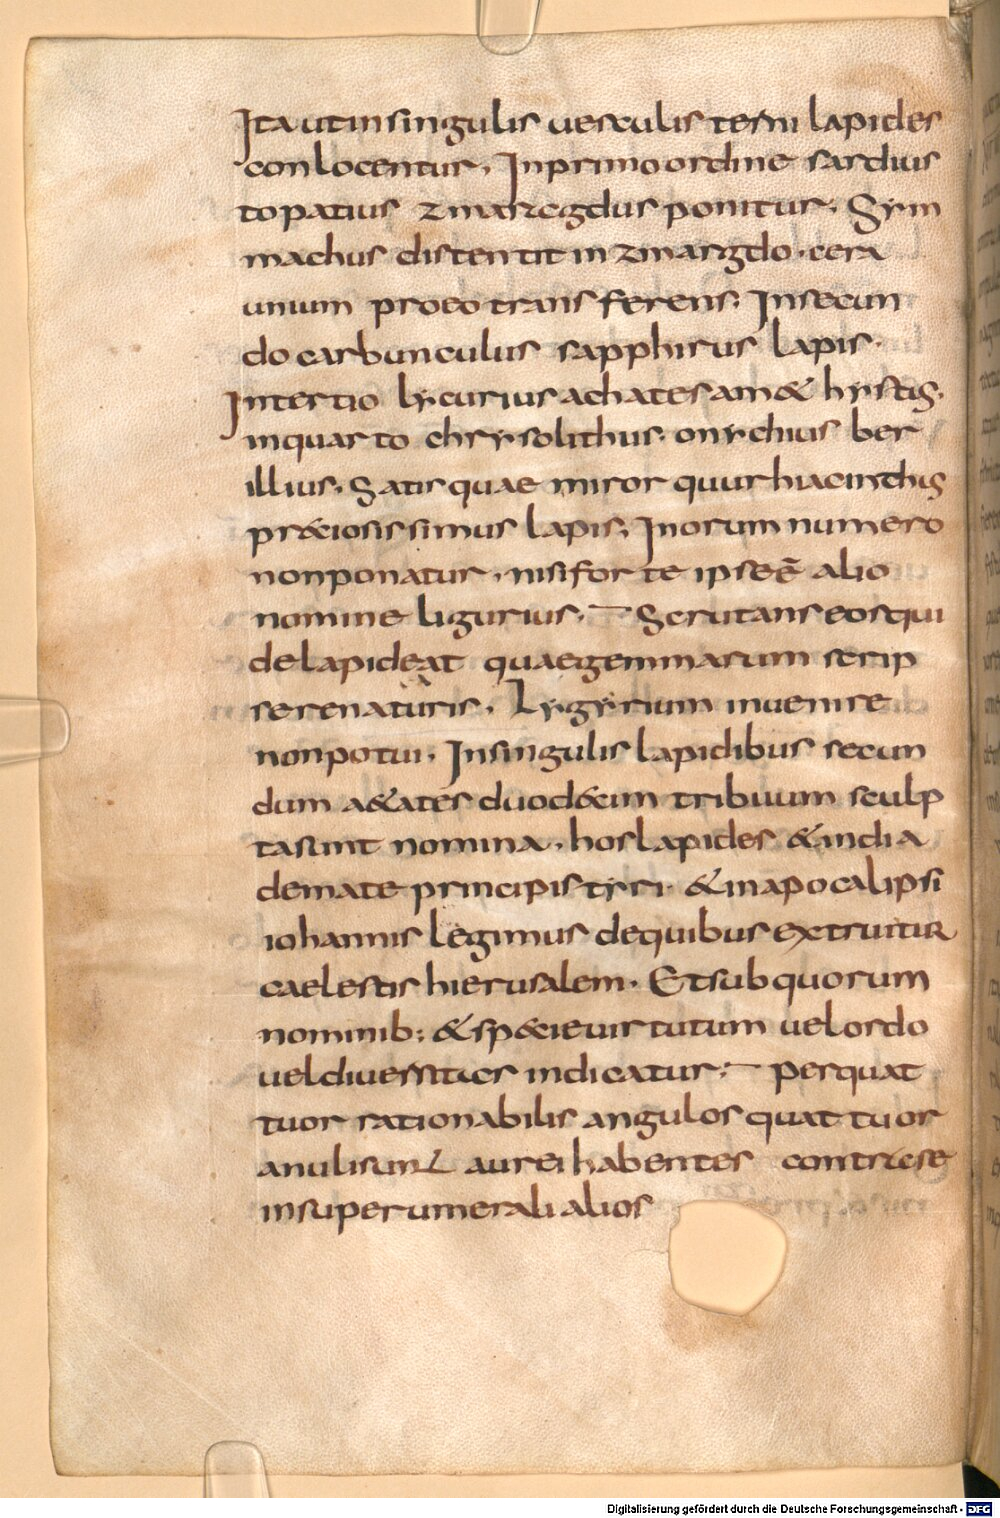 Ita ut in singulis uesculis terni lapides
conlocentur. In primo ordine sardius
topatius zmaregdus ponitur. Sym
machus distentit in zmaragdo. cera
unium pro eo transferens. In secun
do carbunculus sapphirus lapis.
In tertio lycurius achates am& hystis.
in quarto chrysolithus. onychius ber
illius. Satis quae miror quur hiacinthis
pr&ciosissimus lapis. In orum numero
non ponatur. nisi forte ipse ē alio
nomine ligurius. Scrutans eos qui
de lapide at quae gemmarum scrip
sere naturis. Lygyrium inuenire
non potui. In singulis lapidibus secun
dum a&ates duod&cim tribuum sculp
ta sunt nomina. hos lapides & in dia
demate principis tyri. & in apocalipsi
iohannis legimus de quibus extruitur
caelestis hierusalem. Et sub quorum
nominib; & sp&cie uirtutum uel ordo
uel diuersitas indicatur. per quat
tuor rationabilis angulos quattuor
anuli sunt aurei habentes contra se
in superumerali alios